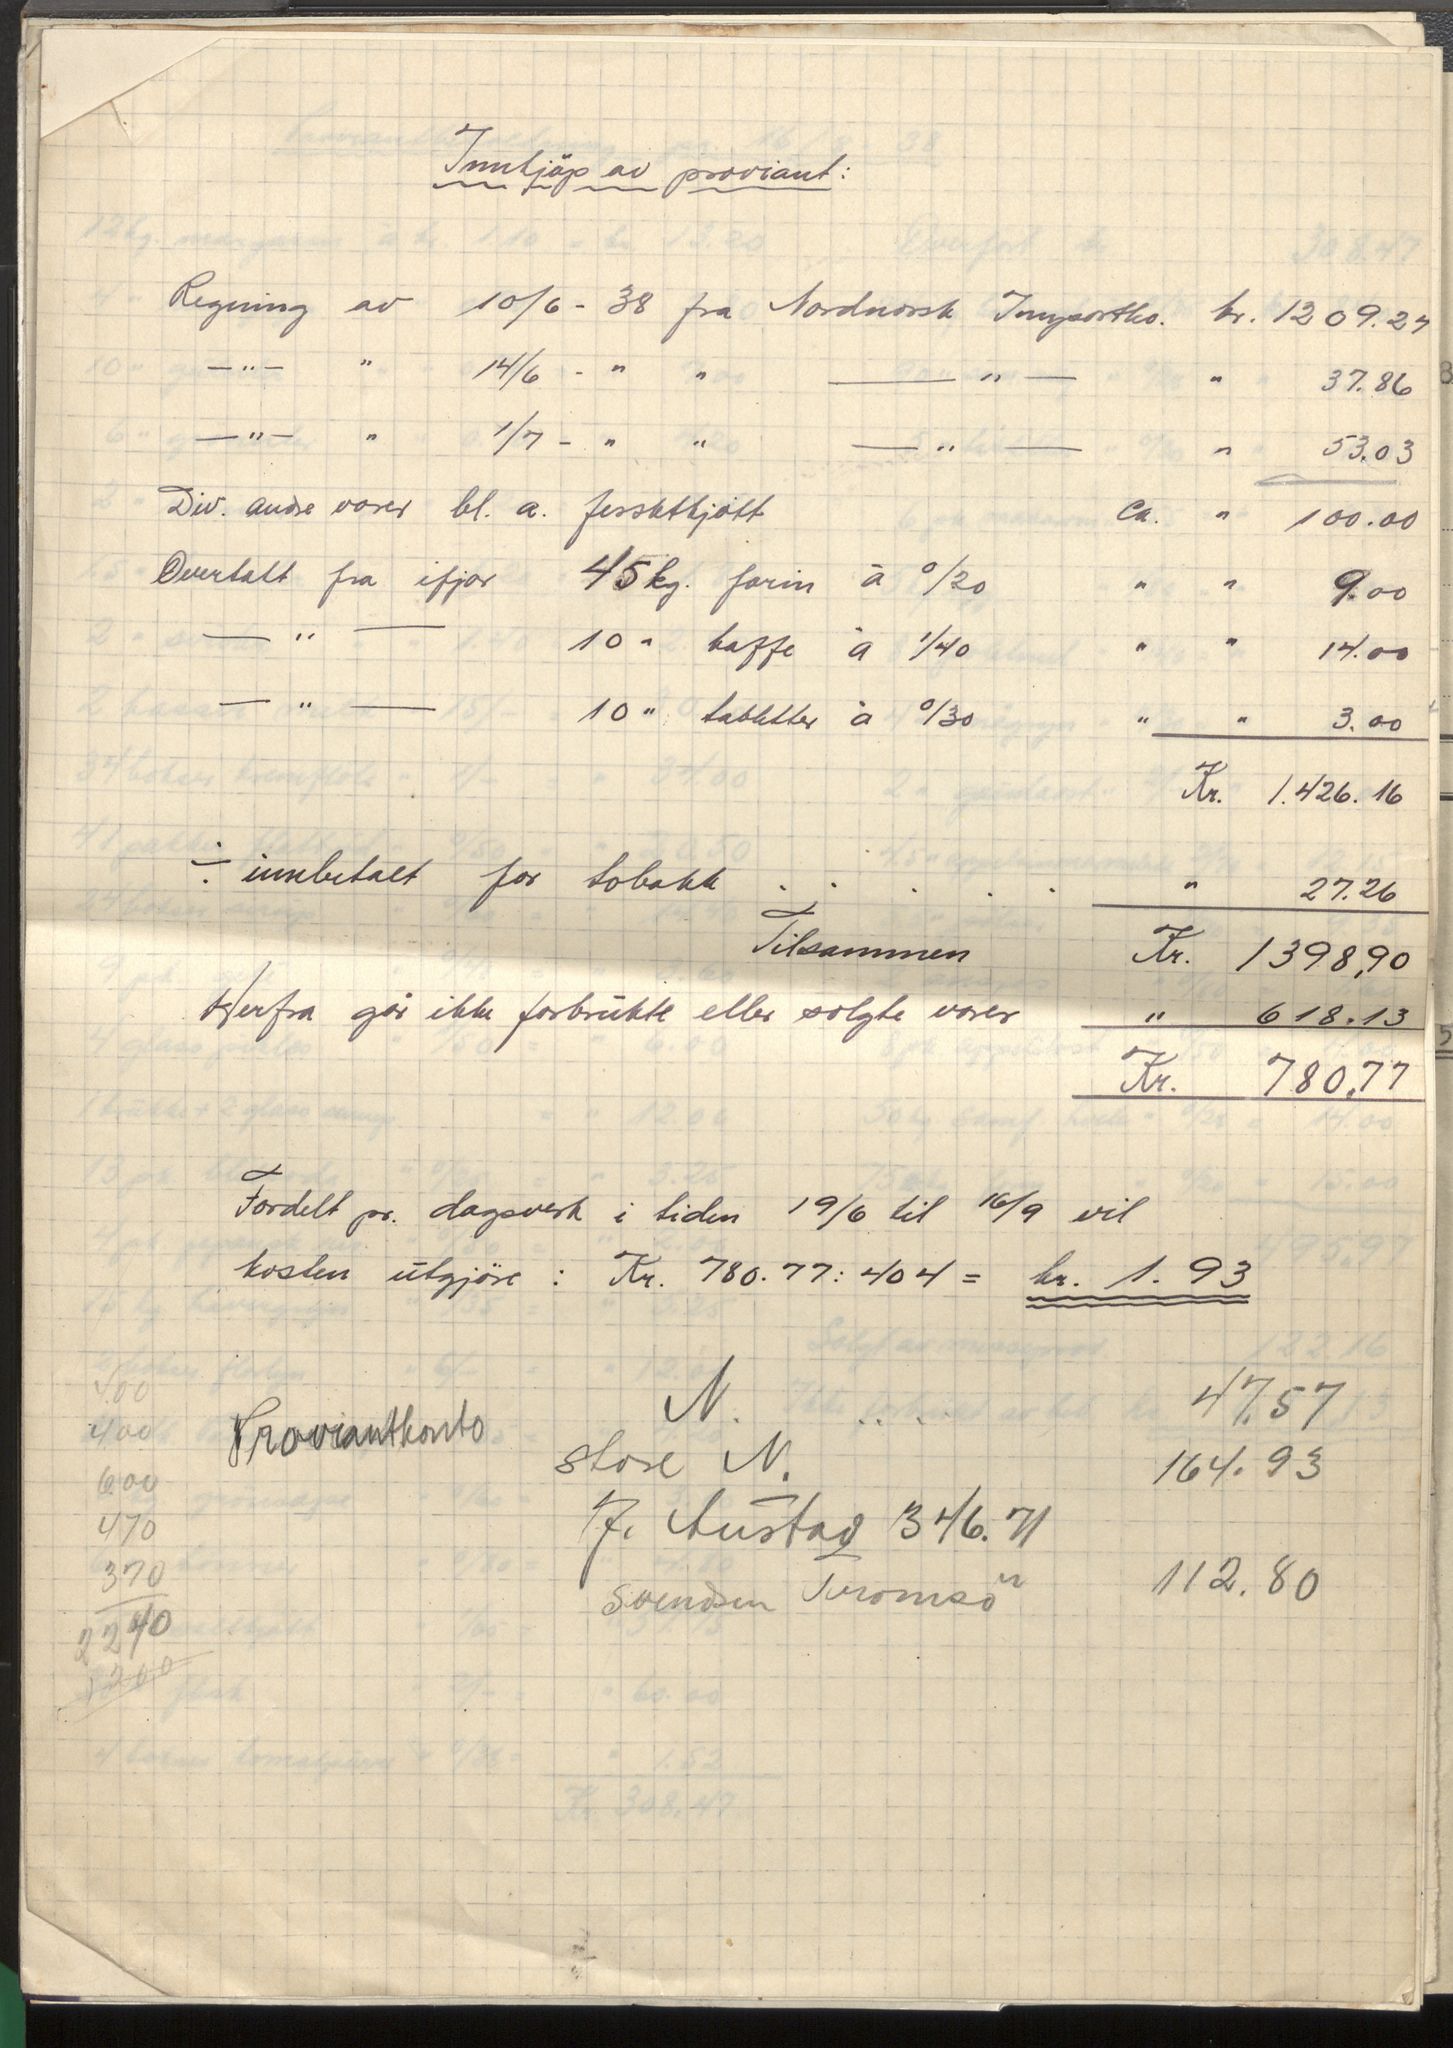 Innkjøp av proviant:
Regning av 10/6 - 38 fra Nordnorsk Importko. kr. 1209.27
—"— " 14/6 - " " — " — " 37.86
—"— " 1/7 - " " — " — " 53.03
Div. andre varer bl. a. ferskt kjøtt ca. " 100.00
Overtatt fra ifjor 45 kg. farin à 0/20 " " 9.00
— " — 10 " kaffe à 1/40 " " 14.00
— " — 10 " tabletter à 0/30 " " 3.00
Kr. 1.426.16
÷ innbetalt for tobakk . . . . . " 27.26
Tilsammen Kr. 1398,90
Herfra går ikke forbrukte eller solgte varer " 618.13
Kr. 780,77
Fordelt pr. dagsverk i tiden 19/6 til 16/9 vil
kosten utgjøre : Kr. 780.77 : 404 = kr. 1.93
Proviantkonto N. . . . . . 47.57
store N. 164.93
J. Austad 346.71
Svendsen Tromsø 112.80
400
400
600
470
370
2240